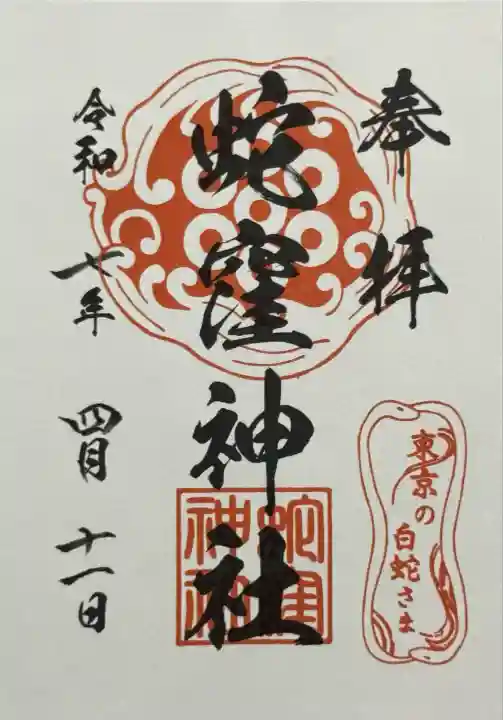 奉拝
東京の
白蛇さま
蛇窪神社
蛇窪
神社
令和七年四月十一日